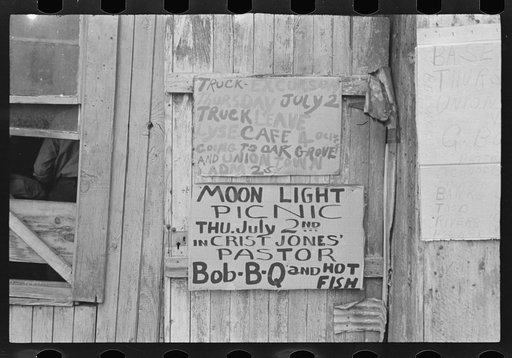 TRUCK-EXCURSION
THURSDAY JULY 2
TRUCK LEAVE
LYSE CAFE
GOING TO OAK GROVE
AND UNION TOWN
ADM 25
MOON LIGHT
PICNIC
THU. July 2ND
IN CRIST JONES'
PASTOR
Bob-B-Q AND HOT
FISH
BASE
THURS
UNION